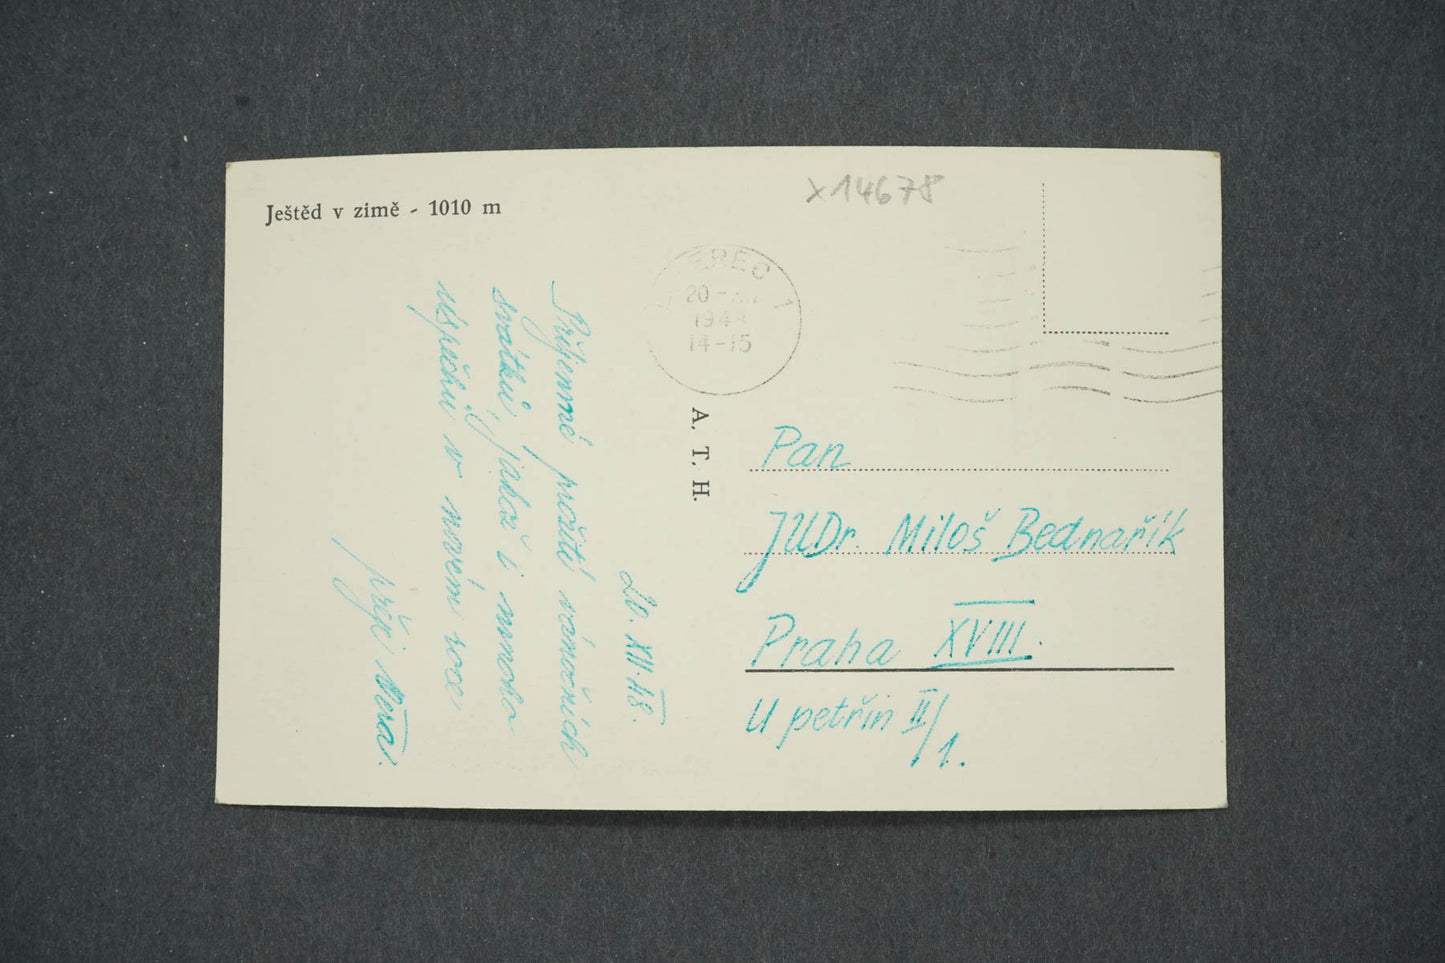 Ještěd v zimě - 1010 m
x14678
EREC 1
20-XII
1948
14-15
A. T. H.
20. XII. 48.
Příjemné prožití vánočních
svátků, jakož i mnoho
úspěchů v novém roce
přeje Věra.
Pan
JUDr. Miloš Bednařík
Praha XVIII.
U petřin II/1.